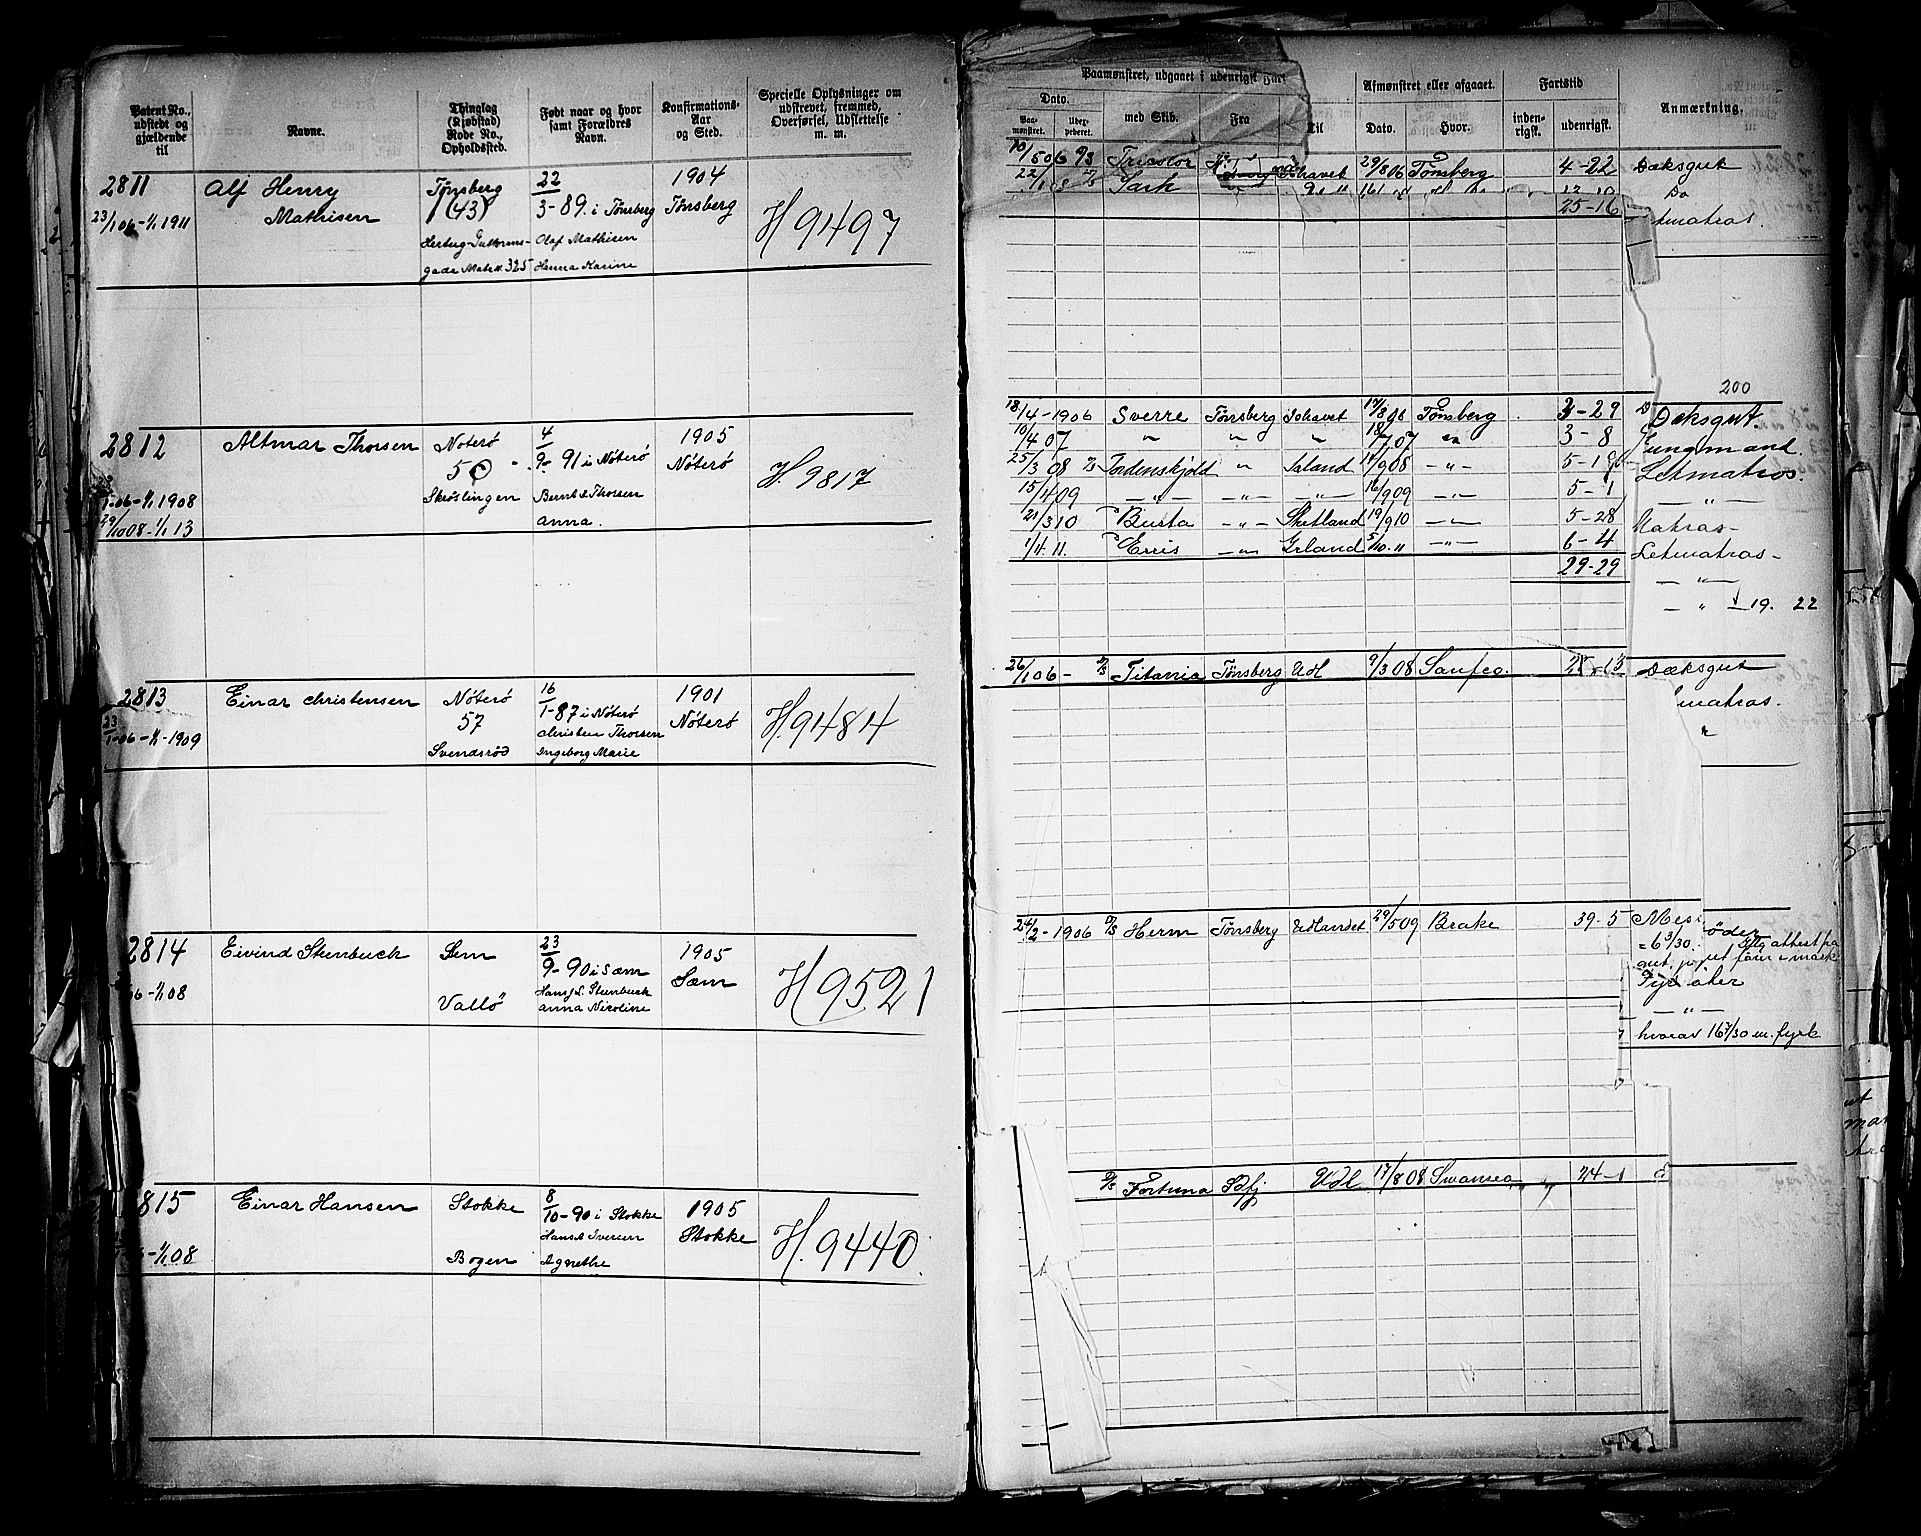 Patent No., udstedt og gjældende til
Navne.
Thinglag (Kjøbstad) Rode No., Opholdssted.
Født naar og hvor samt Forældres Navn.
Konfirmations-Aar og Sted.
Specielle Oplysninger om udstrevet, fremmed, Overførsel, Udslettelse m. m.
2811
23/1 06 - 1/1 1911
Alf Henry
Mathisen
Tønsberg
(43)
gade Matr. 325
22
3-89. i Tønsberg
Olaf Mathisen
Hanna Karine
1904
Tønsberg
H 9497
2812
1-06-1/1 1908
29/10 08-1/1 13
Altmar Thorsen
Nøterø
50
Skröslingen
4
9-91 i Nøterø
Bernt L Thorsen
Anna.
1905
Nøterø
H. 9817
2813
23
1-06-1/1-1909
Einar Christensen
Nøterø
57
Svendsrød
16
1-87 i Nøterø
Christen Thorsen
Ingeborg Marie
1901
Nøterø
H. 9484
2814
06-1/1 08
Eivind Stenbuck
Sem
Vallö
23
9-90 i Sæm
Hans J L Stenbuck
Anna Nicoline
1905
Sæm
H 9521
815
-1/1 08
Einar Hansen
Stokke
Bogen
8
10-90 i Stokke
Hans L Iversen
Agnethe
1905
Stokke
H. 9440
Paamønstret, udgaaet i udenrigsk Fart
Afmønstret eller afgaaet.
Fartstid
Anmærkning.
Dato.
med Skib.
Fra
Til
Dato.
Hvor.
inden-rigsk.
udenrigsk.
Paa-mønstret.
Uder-pederet.
Tricolor
Ishavet 29/8 06 Tønsberg 4-22 Dæksgut
Sark
Do
25-16
200
18/4-1906 Sverre Tønsberg Ishavet 17/8 06 Tønsberg 3-29 Dæksgut.
10/4 07 " " " 18/7 07 " 3-8 Jungmand.
25/3 08 Tordenskjold " Island 14/9 08 -"- 5-18 Letmatros.
15/4 09 -"- -"- -"- 16/9 09 -"- 5-1 -"-
21/3 10 Busta -"- Shetland 19/9 10 -"- 5-28 Matros-
1/4 11. Erris -"- Irland 5/10 11 -"- 6-4 Letmatros-
29-29
-"-
-"- 19. 22
26/1 06- Titania Tønsberg Udl 9/3 08 Sanfco. Dæksgut
matros.
"
24/2-1906 Herm Tønsberg Udlandet 29/5 09 Brake 39-5
= 6 3/30.
-"-
hvorav 16 3/30 m. fyrb
Fortuna Udl 17/8 08 Swansea